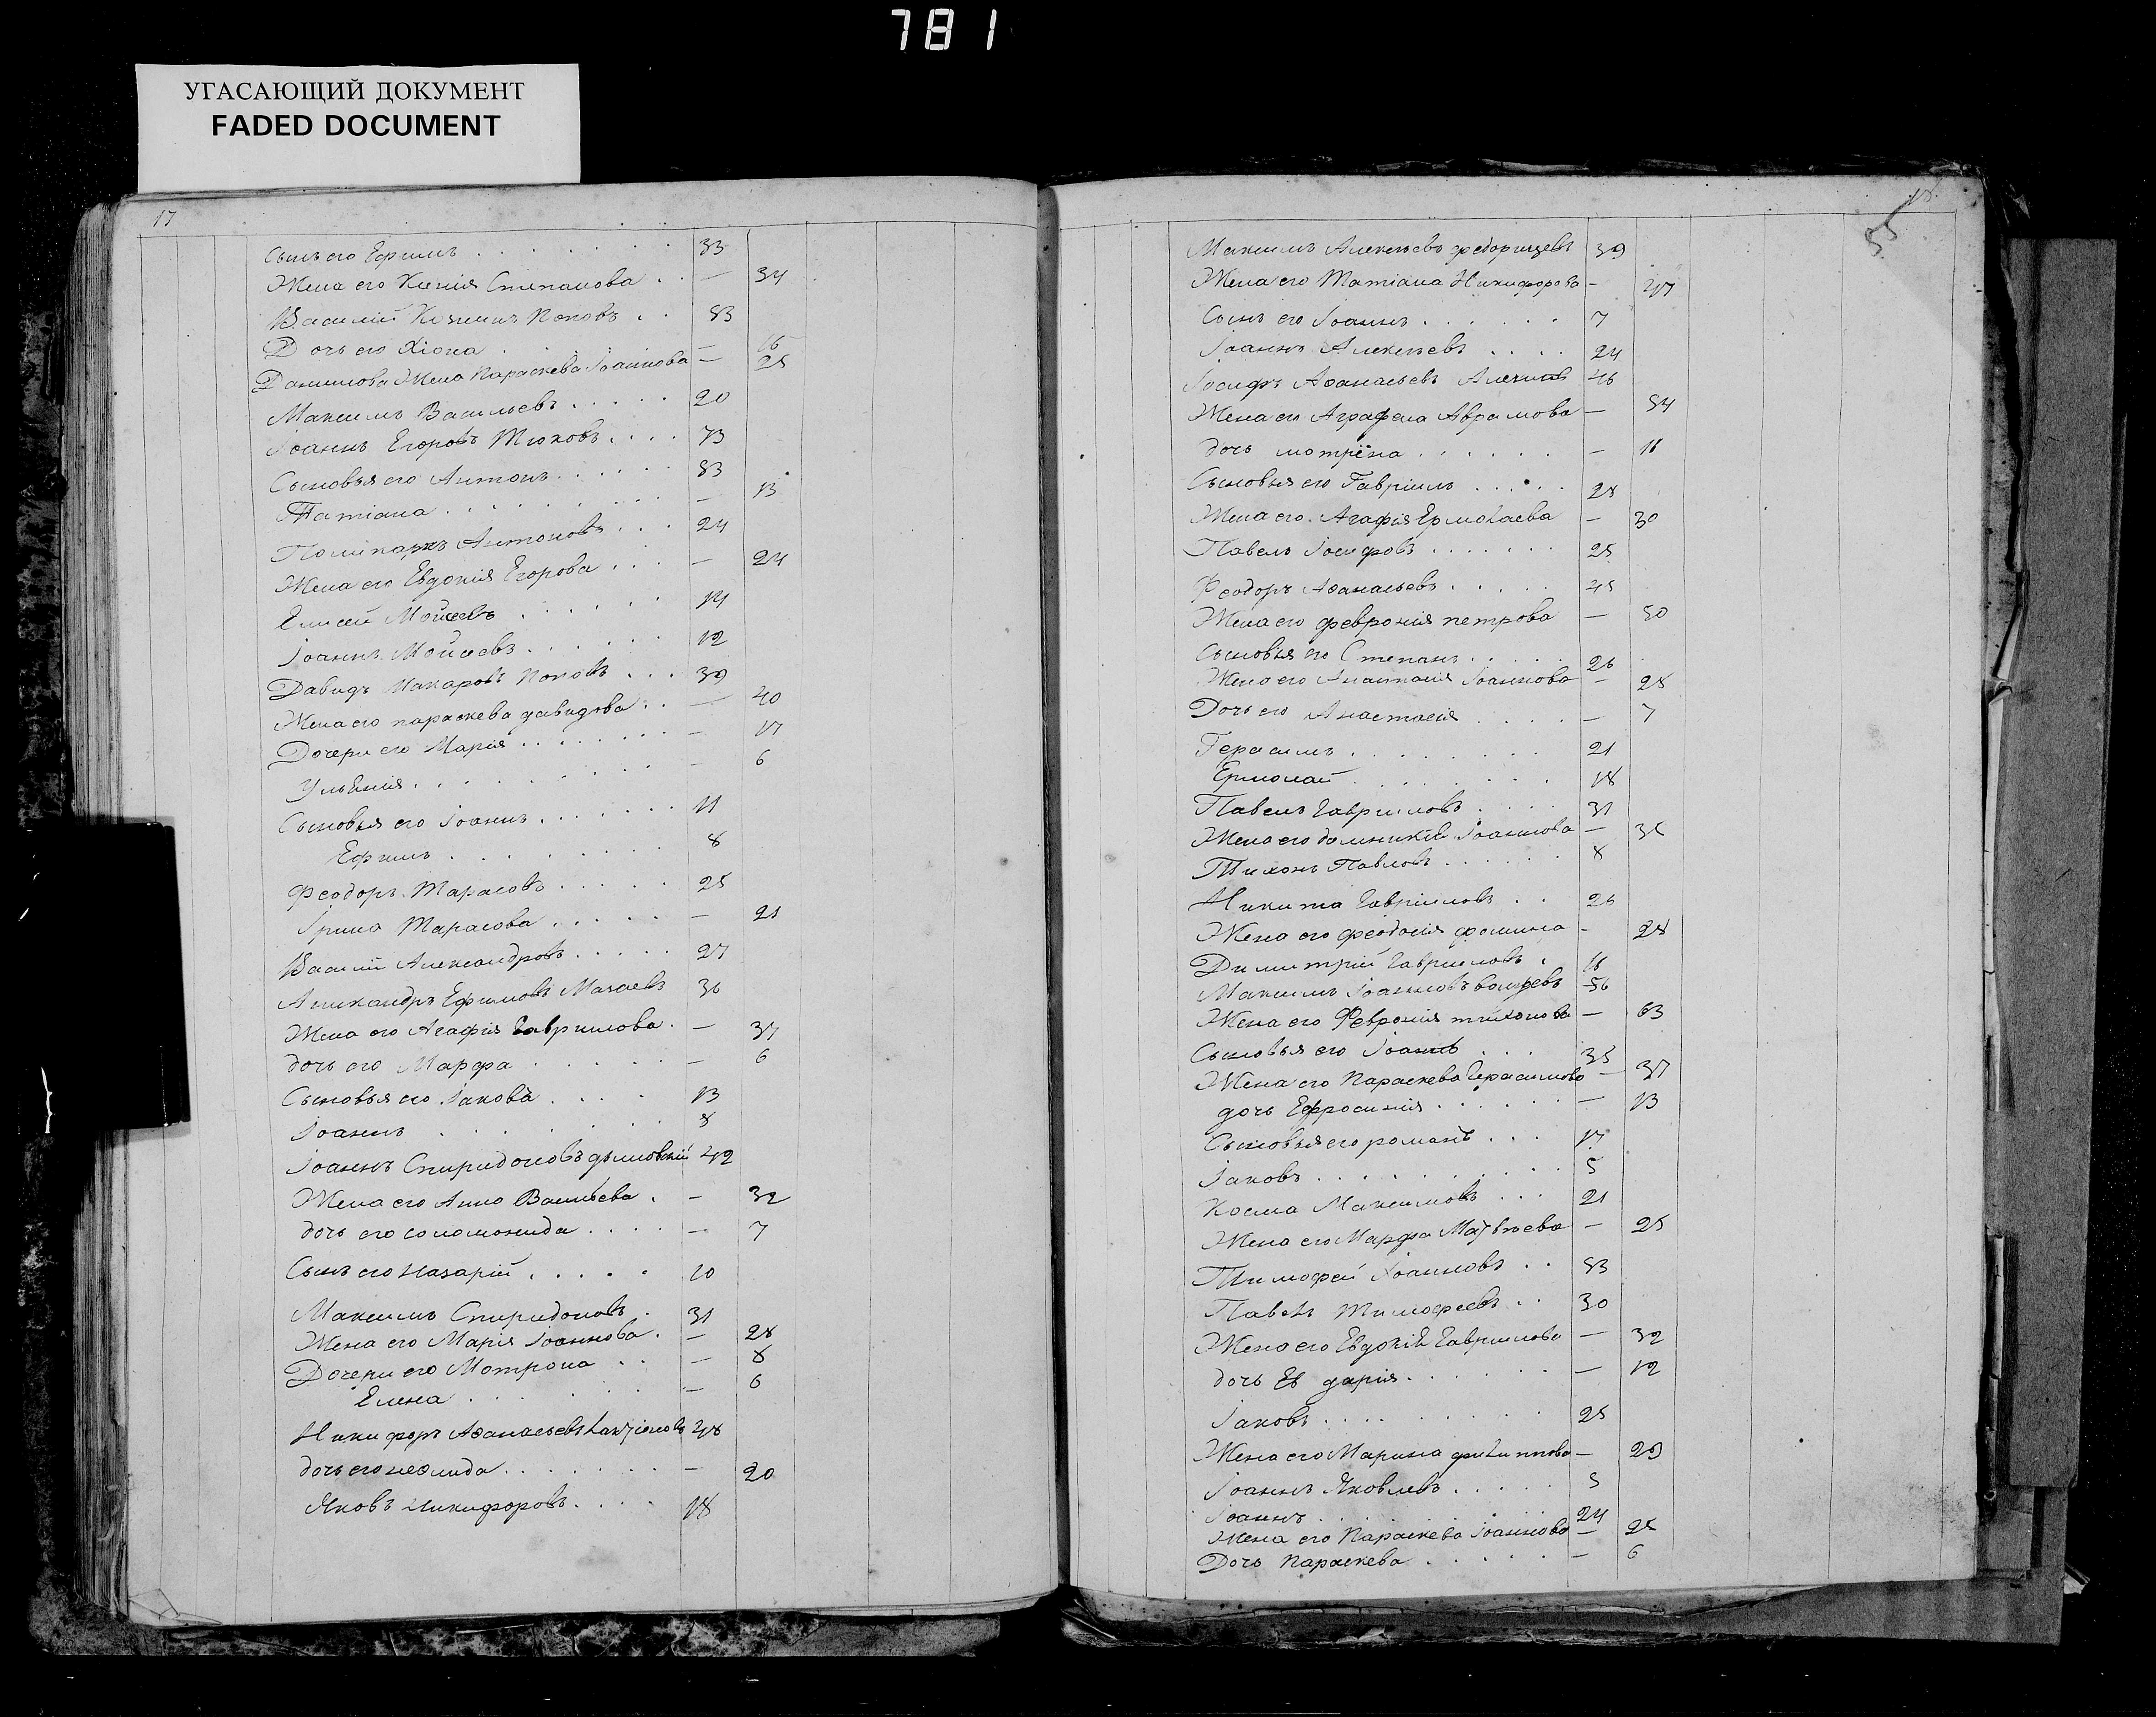 781
УГАСАЮЩИЙ ДОКУМЕНТ
FADED DOCUMENT
17
Сынъ его Ефимъ . . . . . . . 33
Жена его Ксенія Степанова . . — 34
Василій Козминъ Поповъ . . 53
Дочь его Хіона . . . — 16
Данилова Жена Параскева Іоаннова — 25
Максимъ Васильевъ . . . . . 20
Іоаннъ Егоровъ Тюковъ . . . . 73
Сыновья его Антонъ . . . . . 53
Татіана . . . . . . . . — 13
Поликарпъ Антоновъ . . . 24
Жена его Евдокія Егорова . . . — 24
Елисей Мойсеевъ . . . . . . 14
Іоаннъ Мойсеевъ . . . . . . 12
Давидъ Макаровъ Поповъ . . . 39
Жена его параскева давидова . . — 40
Дочери его Марія . . . . . . . . — 17
Ульянія . . . . . . . . — 6
Сыновья его Іоаннъ . . . . . . 11
Ефимъ . . . . . . . . 8
Феодоръ Тарасовъ . . . . . 25
Ірина Тарасова . . . . . — 21
Василій Александровъ . . . . . 27
Александръ Ефимовъ 36
Жена его Агафія Гаврилова . — 37
дочь его Марфа . . . . . — 6
Сыновья его Іаковъ . . . . 13
Іоаннъ . . . . . . . 8
Іоаннъ Спиридоновъ 42
Жена его Анна Васильева . — 32
дочь его соломонида . . . . — 7
Сынъ его Назарій . . . . . 10
Максимъ Спиридоновъ . 31
Жена его Марія Іоаннова . — 28
Дочери его Мотрона . . — 8
Елена . . . . . . — 6
Никифоръ Аѳанасьевъ 48
дочь его неонида . . . . . . . — 20
Яковъ никифоровъ . . . . 18
18.
55
Максимъ Алексѣевъ 39
Жена его Татіана Никифорова — 47
Сынъ его Іоаннъ . . . . . . 7
Іоаннъ Алексѣевъ . . . . 24
Іосифъ Аѳанасьевъ 46
Жена его Аграфена Аврамова — 54
дочь мотрёна . . . . . . — 11
Сыновья его Гавріилъ . . . . . 28
Жена его Агафія Ермолаева — 30
Павелъ Іосифовъ . . . . . . . 25
Феодоръ Аѳанасьевъ . . . . . 45
Жена его февронія петрова — 50
Сыновья его Степанъ . . . . . 26
Жена его Анастасія Іоаннова — 28
Дочь его Анастасія . . . . — 7
Герасимъ . . . . . . . . 21
Ермолай . . . . . . . . 18
Павелъ Гавриловъ . . . . 31
Жена его домникія Іоаннова — 35
Тихонъ Павловъ . . . . . . 8
Никита Гавріиловъ . . 26
Жена его феодосія фомина — 28
Димитрій Гавриловъ . 16
Максимъ Іоанновъ 56
Жена его Февронія тихонова — 63
Сыновья его Іоаннъ . . . 35
Жена его Параскева Герасимова — 37
дочь Ефросинія . . . . . . — 13
Сыновья его романъ . . . 17
Іаковъ . . . . . . . . . 5
Косма Максимовъ . . . 21
Жена его Марфа Матвѣева — 25
Тимофей Іоанновъ . . 53
Павелъ Тимофеевъ . . 30
Жена его Евдокія Гаврилова — 32
дочь Ев дарія . . . . . . — 12
Іаковъ . . . . . . . . 25
Жена его Марина филиппова — 29
Іоаннъ Яковлевъ . . . . . 5
Іоаннъ . . . . . . . . 24
Жена его Параскева Іоаннова — 25
Дочь Параскева . . . . . — 6